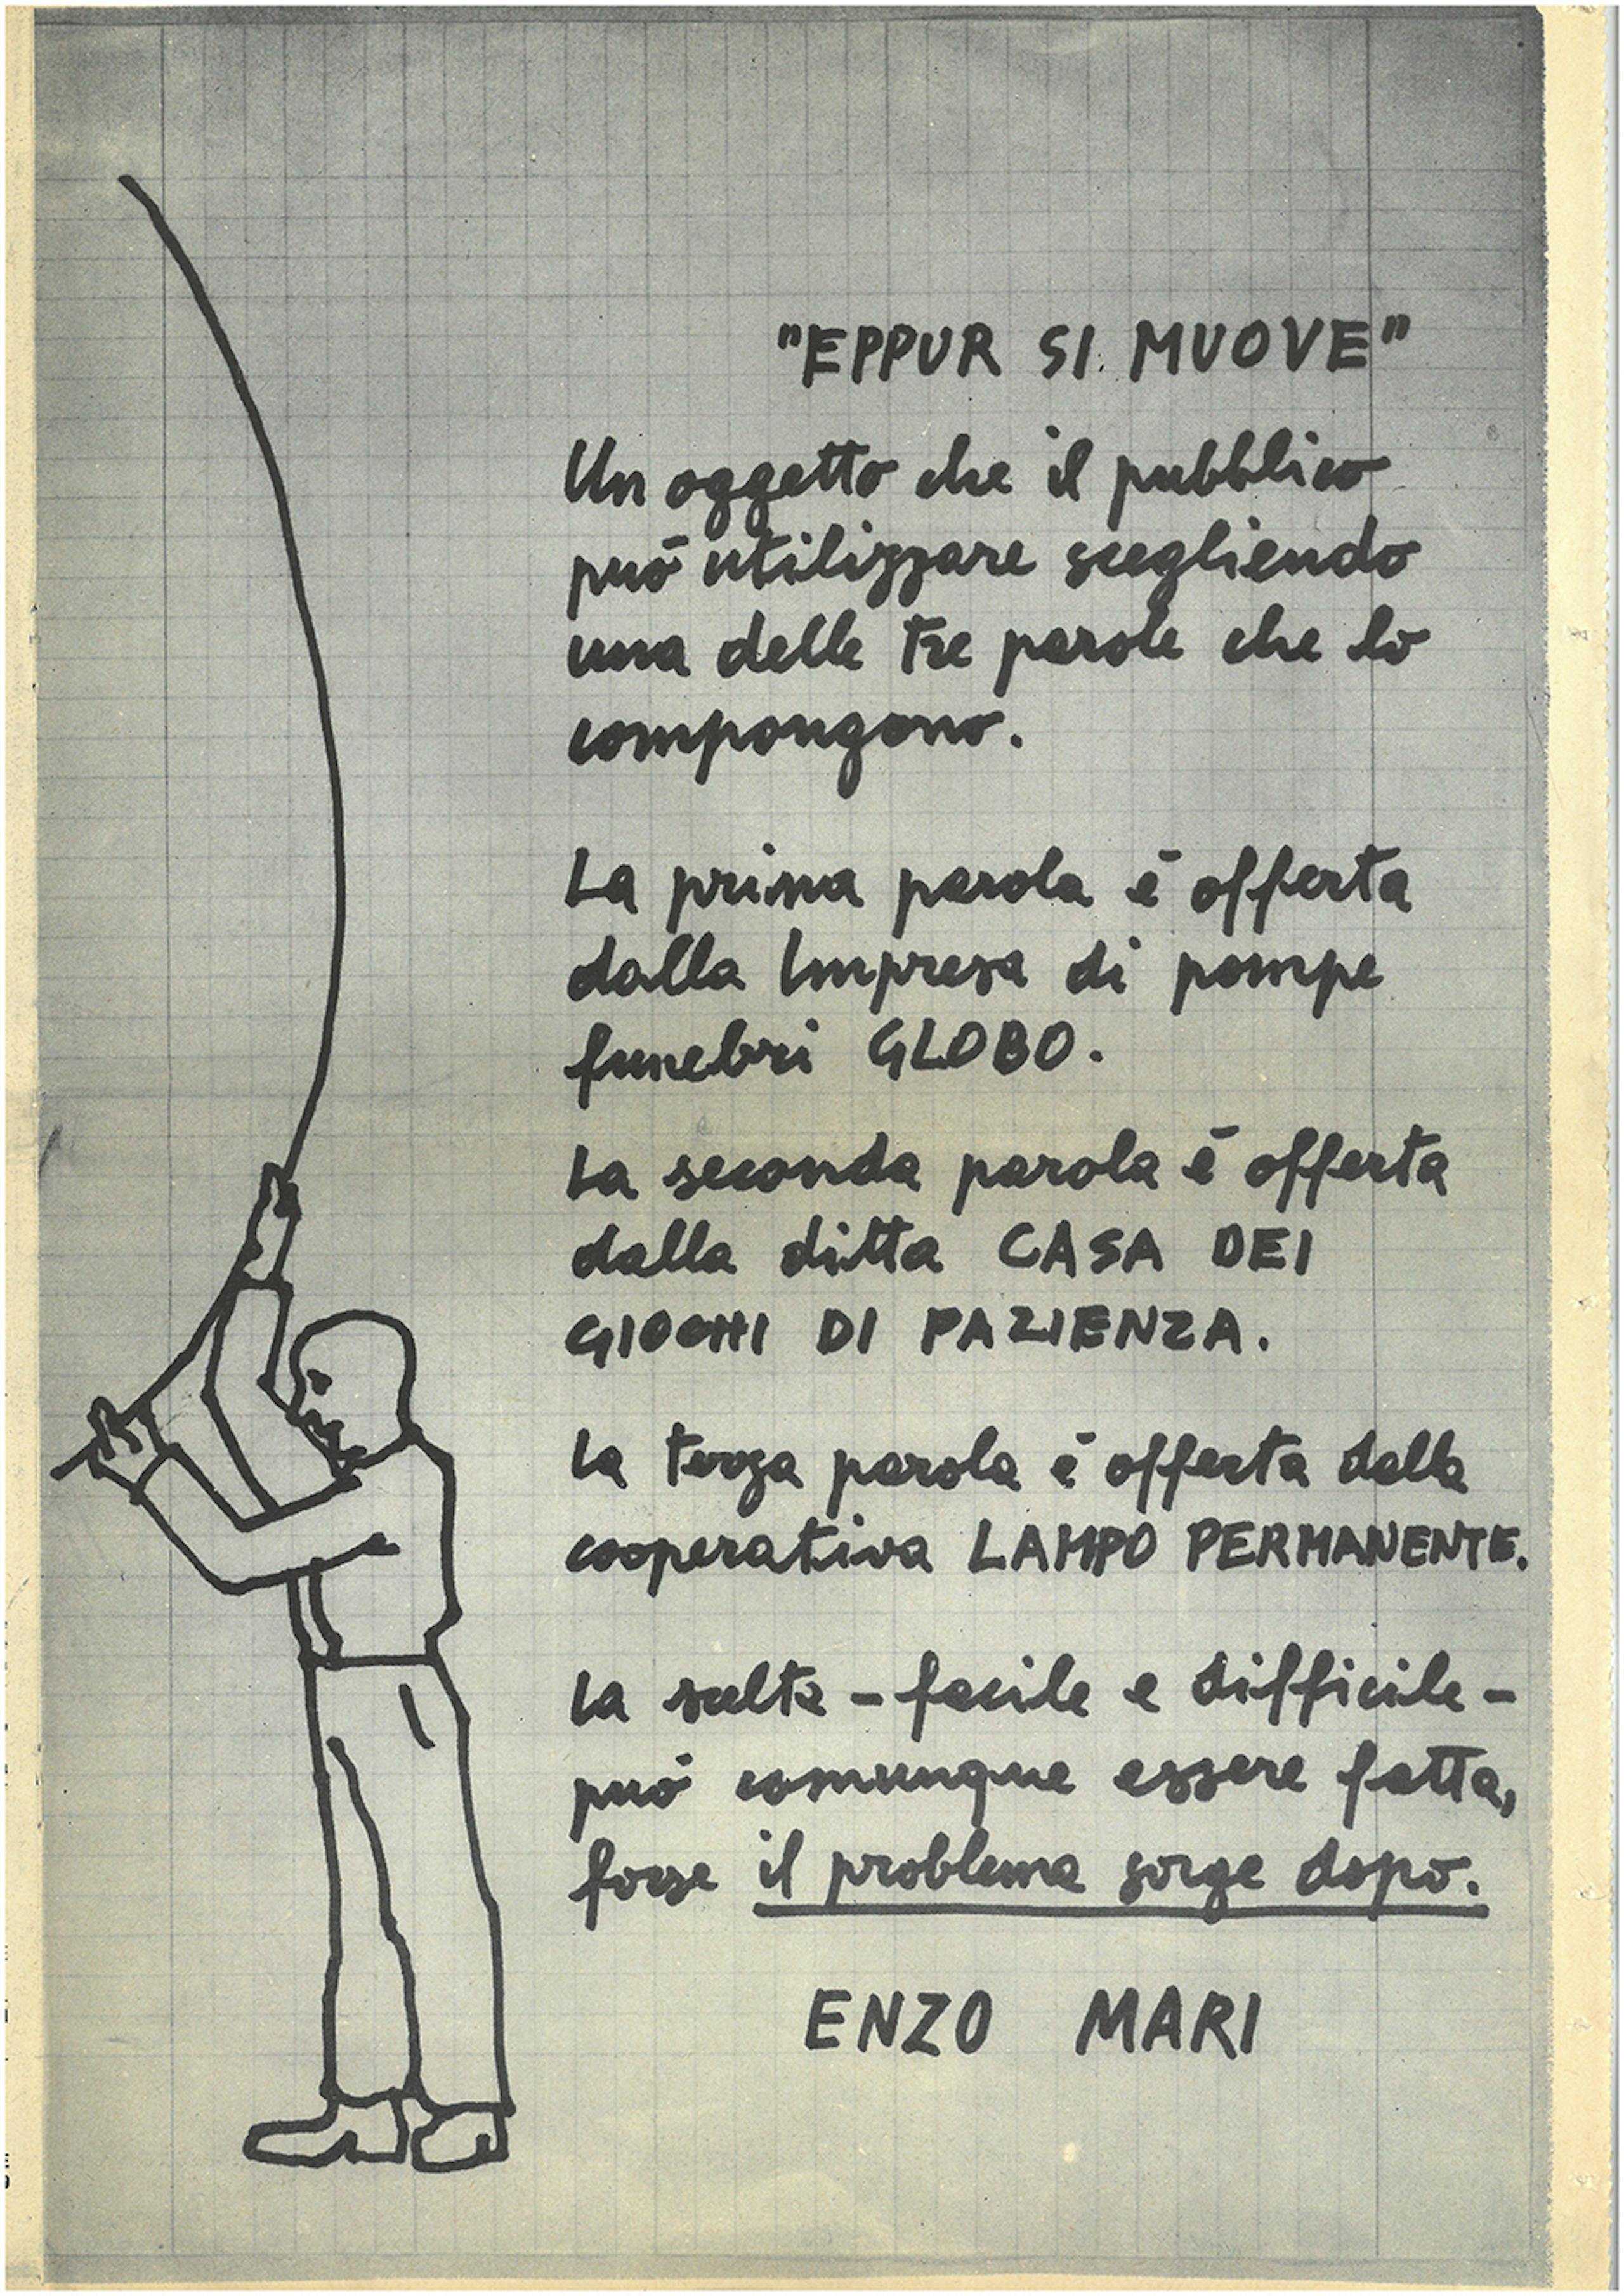 "EPPUR SI MUOVE"
Un oggetto che il pubblico
può utilizzare scegliendo
una delle tre parole che lo
compongono.
La prima parola è offerta
dalla Impresa di pompe
funebri GLOBO.
La seconda parola è offerta
dalla ditta CASA DEI
GIOCHI DI PAZIENZA.
La terza parola è offerta dalla
cooperativa LAMPO PERMANENTE.
La scelta - facile e difficile -
può comunque essere fatta,
forse il problema sorge dopo.
ENZO MARI